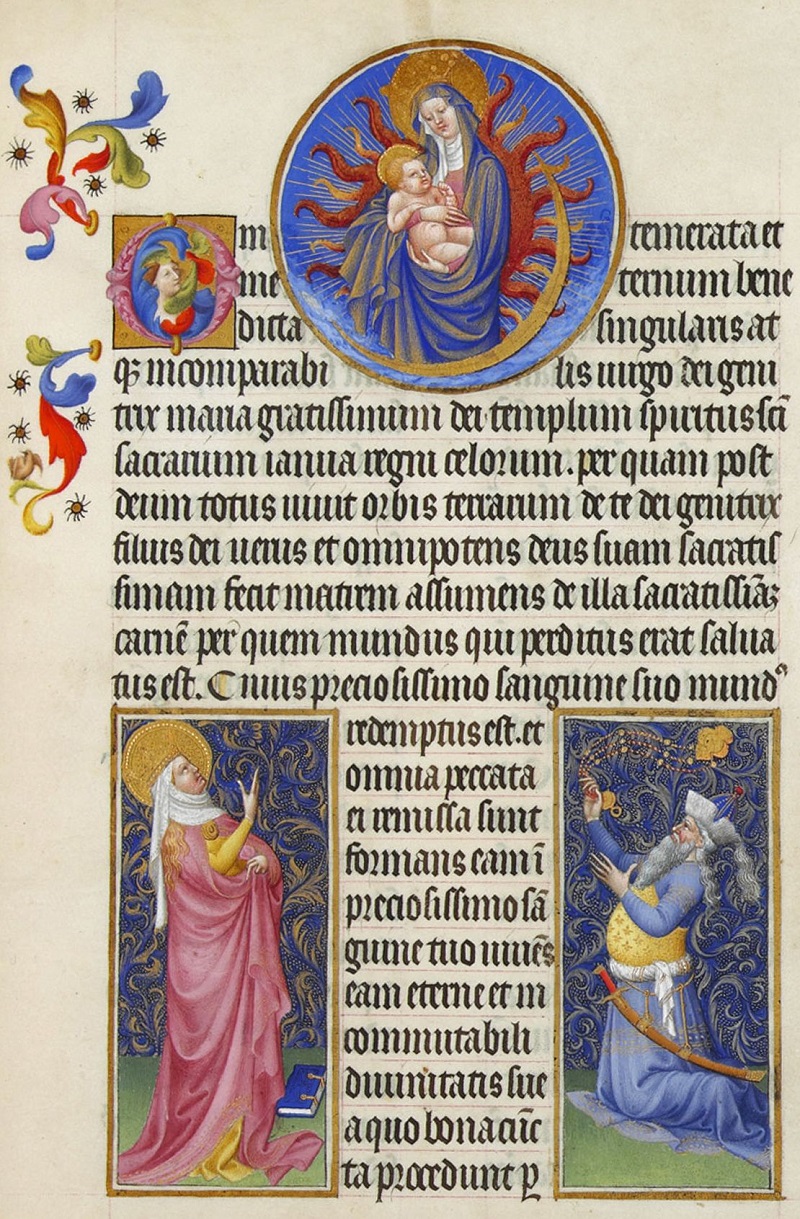 O m temerata et
me ternum bene
dicta singularis at
qꝫ incomparabi lis uirgo dei geni
trix maria gratissimum dei templum spiritus sc̄i
sacrarium ianua regni celorum. per quam post
deum totus uiuit orbis terrarum de te dei genitrix
filius dei uerus et omnipotens deus suam sacratis
simam fecit matrem assumens de illa sacratissiāꝫ
carnē per quem mundus qui perditus erat salua
tus est. Cuius preciosissimo sanguine suo mundꝰ
redemptus est. et
omnia peccata
ei remissa sunt
formans eam ī
preciosissimo sā
guine tuo uiuēs
eam eterne et in
commutabili
diuinitatis sue
a quo bona cūc
ta procedunt ꝑ